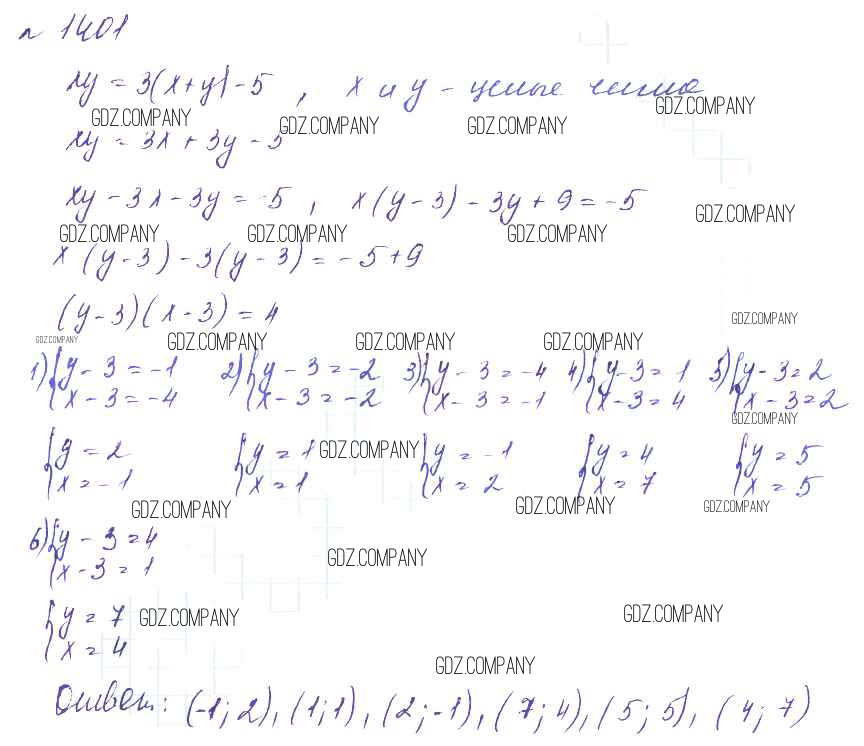 № 1401
xy = 3(x+y) - 5 , x и y - целые числа
GDZ.COMPANY
GDZ.COMPANY GDZ.COMPANY GDZ.COMPANY
xy = 3x + 3y - 5
xy - 3x - 3y = -5 , x(y-3) - 3y + 9 = -5
GDZ.COMPANY
GDZ.COMPANY GDZ.COMPANY GDZ.COMPANY
x(y-3) - 3(y-3) = -5+9
(y-3)(x-3) = 4
GDZ.COMPANY
GDZ.COMPANY GDZ.COMPANY GDZ.COMPANY GDZ.COMPANY
1) { y - 3 = -1 2) { y - 3 = -2 3) { y - 3 = -4 4) { y - 3 = 1 5) { y - 3 = 2
x - 3 = -4 x - 3 = -2 x - 3 = -1 x - 3 = 4 x - 3 = 2
GDZ.COMPANY
{ y = 2 { y = 1 GDZ.COMPANY { y = -1 { y = 4 { y = 5
x = -1 x = 1 x = 2 x = 7 x = 5
GDZ.COMPANY GDZ.COMPANY GDZ.COMPANY
6) { y - 3 = 4
GDZ.COMPANY
x - 3 = 1
{ y = 7 GDZ.COMPANY GDZ.COMPANY
x = 4
GDZ.COMPANY
Ответ: (-1; 2), (1; 1), (2; -1), (7; 4), (5; 5), (4; 7)